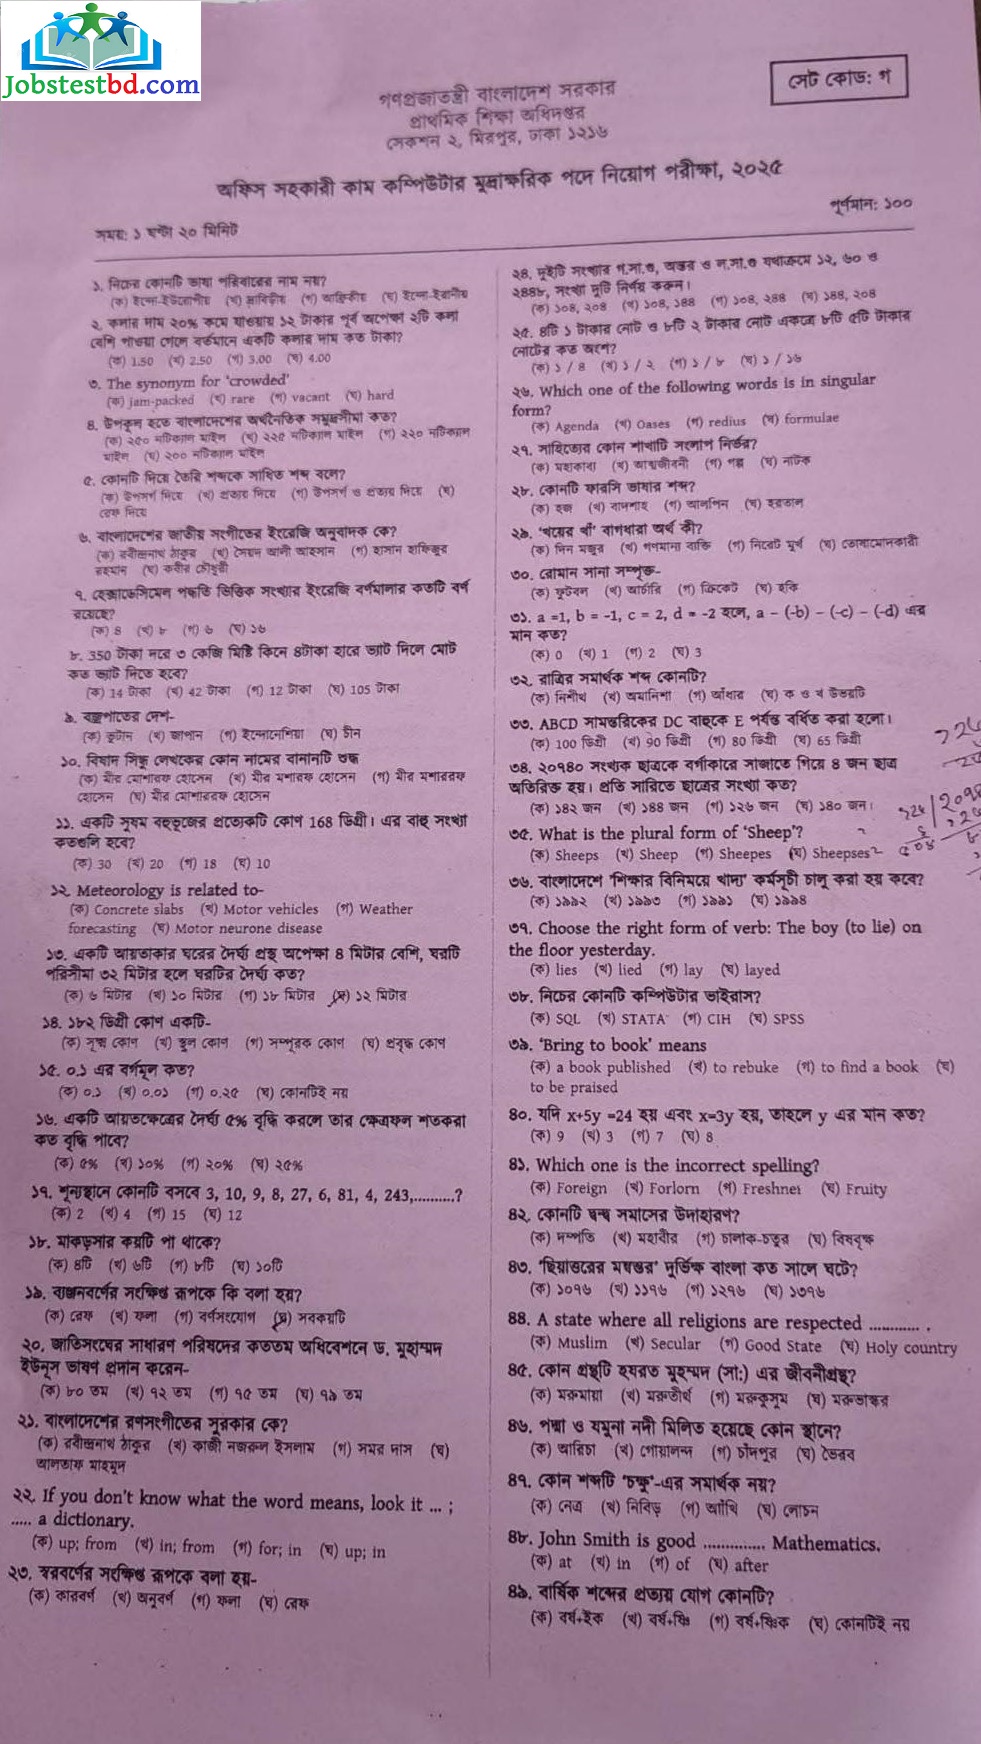 Jobstestbd.com
সেট কোড: গ
গণপ্রজাতন্ত্রী বাংলাদেশ সরকার
প্রাথমিক শিক্ষা অধিদপ্তর
সেকশন ২, মিরপুর, ঢাকা ১২১৬
অফিস সহকারী কাম কম্পিউটার মুদ্রাক্ষরিক পদে নিয়োগ পরীক্ষা, ২০২৫
পূর্ণমান: ১০০
সময়: ১ ঘণ্টা ২০ মিনিট
১. নিচের কোনটি ভাষা পরিবারের নাম নয়?
(ক) ইন্দো-ইউরোপীয় (খ) দ্রাবিড়ীয় (গ) আফ্রিকীয় (ঘ) ইন্দো-ইরানীয়
২. কলার দাম ২০% কমে যাওয়ায় ১২ টাকার পূর্ব অপেক্ষা ২টি কলা
বেশি পাওয়া গেলে বর্তমানে একটি কলার দাম কত টাকা?
(ক) 1.50 (খ) 2.50 (গ) 3.00 (ঘ) 4.00
৩. The synonym for ‘crowded’
(ক) jam-packed (খ) rare (গ) vacant (ঘ) hard
৪. উপকূল হতে বাংলাদেশের অর্থনৈতিক সমুদ্রসীমা কত?
(ক) ২৫০ নটিক্যাল মাইল (খ) ২২৫ নটিক্যাল মাইল (গ) ২২০ নটিক্যাল
মাইল (ঘ) ২০০ নটিক্যাল মাইল
৫. কোনটি দিয়ে তৈরি শব্দকে সাধিত শব্দ বলে?
(ক) উপসর্গ দিয়ে (খ) প্রত্যয় দিয়ে (গ) উপসর্গ ও প্রত্যয় দিয়ে (ঘ)
রেফ দিয়ে
৬. বাংলাদেশের জাতীয় সংগীতের ইংরেজি অনুবাদক কে?
(ক) রবীন্দ্রনাথ ঠাকুর (খ) সৈয়দ আলী আহসান (গ) হাসান হাফিজুর
রহমান (ঘ) কবীর চৌধুরী
৭. হেক্সাডেসিমেল পদ্ধতি ভিত্তিক সংখ্যার ইংরেজি বর্ণমালার কতটি বর্ণ
রয়েছে?
(ক) ৪ (খ) ৮ (গ) ৬ (ঘ) ১৬
৮. 350 টাকা দরে ৩ কেজি মিষ্টি কিনে ৪টাকা হারে ভ্যাট দিলে মোট
কত ভ্যাট দিতে হবে?
(ক) 14 টাকা (খ) 42 টাকা (গ) 12 টাকা (ঘ) 105 টাকা
৯. বজ্রপাতের দেশ-
(ক) ভুটান (খ) জাপান (গ) ইন্দোনেশিয়া (ঘ) চীন
১০. বিষাদ সিন্ধু লেখকের কোন নামের বানানটি শুদ্ধ
(ক) মীর মোশারফ হোসেন (খ) মীর মশারফ হোসেন (গ) মীর মশাররফ
হোসেন (ঘ) মীর মোশাররফ হোসেন
১১. একটি সুষম বহুভুজের প্রত্যেকটি কোণ 168 ডিগ্রী। এর বাহু সংখ্যা
কতগুলি হবে?
(ক) 30 (খ) 20 (গ) 18 (ঘ) 10
১২. Meteorology is related to-
(ক) Concrete slabs (খ) Motor vehicles (গ) Weather
forecasting (ঘ) Motor neurone disease
১৩. একটি আয়তাকার ঘরের দৈর্ঘ্য প্রস্থ অপেক্ষা ৪ মিটার বেশি, ঘরটি
পরিসীমা ৩২ মিটার হলে ঘরটির দৈর্ঘ্য কত?
(ক) ৬ মিটার (খ) ১০ মিটার (গ) ১৮ মিটার (ঘ) ১২ মিটার
১৪. ১৮২ ডিগ্রী কোণ একটি-
(ক) সূক্ষ্ম কোণ (খ) স্থুল কোণ (গ) সম্পূরক কোণ (ঘ) প্রবৃদ্ধ কোণ
১৫. ০.১ এর বর্গমূল কত?
(ক) ০.১ (খ) ০.০১ (গ) ০.২৫ (ঘ) কোনটিই নয়
১৬. একটি আয়তক্ষেত্রের দৈর্ঘ্য ৫% বৃদ্ধি করলে তার ক্ষেত্রফল শতকরা
কত বৃদ্ধি পাবে?
(ক) ৫% (খ) ১০% (গ) ২০% (ঘ) ২৫%
১৭. শূন্যস্থানে কোনটি বসবে 3, 10, 9, 8, 27, 6, 81, 4, 243,..........?
(ক) 2 (খ) 4 (গ) 15 (ঘ) 12
১৮. মাকড়সার কয়টি পা থাকে?
(ক) ৪টি (খ) ৬টি (গ) ৮টি (ঘ) ১০টি
১৯. ব্যঞ্জনবর্ণের সংক্ষিপ্ত রূপকে কি বলা হয়?
(ক) রেফ (খ) ফলা (গ) বর্ণসংযোগ (ঘ) সবকয়টি
২০. জাতিসংঘের সাধারণ পরিষদের কততম অধিবেশনে ড. মুহাম্মদ
ইউনূস ভাষণ প্রদান করেন-
(ক) ৮০ তম (খ) ৭২ তম (গ) ৭৫ তম (ঘ) ৭৯ তম
২১. বাংলাদেশের রণসংগীতের সুরকার কে?
(ক) রবীন্দ্রনাথ ঠাকুর (খ) কাজী নজরুল ইসলাম (গ) সমর দাস (ঘ)
আলতাফ মাহমুদ
২২. If you don't know what the word means, look it ... ;
..... a dictionary.
(ক) up; from (খ) in; from (গ) for; in (ঘ) up; in
২৩. স্বরবর্ণের সংক্ষিপ্ত রূপকে বলা হয়-
(ক) কারবর্ণ (খ) অনুবর্ণ (গ) ফলা (ঘ) রেফ
২৪. দুইটি সংখ্যার গ.সা.গু, অন্তর ও ল.সা.গু যথাক্রমে ১২, ৬০ ও
২৪৪৮, সংখ্যা দুটি নির্ণয় করুন।
(ক) ১০৪, ২০৪ (খ) ১০৪, ১৪৪ (গ) ১০৪, ২৪৪ (ঘ) ১৪৪, ২০৪
২৫. ৪টি ১ টাকার নোট ও ৮টি ২ টাকার নোট একত্রে ৮টি ৫টি টাকার
নোটের কত অংশ?
(ক) ১ / ৪ (খ) ১ / ২ (গ) ১ / ৮ (ঘ) ১ / ১৬
২৬. Which one of the following words is in singular
form?
(ক) Agenda (খ) Oases (গ) redius (ঘ) formulae
২৭. সাহিত্যের কোন শাখাটি সংলাপ নির্ভর?
(ক) মহাকাব্য (খ) আত্মজীবনী (গ) গল্প (ঘ) নাটক
২৮. কোনটি ফারসি ভাষার শব্দ?
(ক) হজ (খ) বাদশাহ (গ) আলপিন (ঘ) হরতাল
২৯. ‘খয়ের খাঁ’ বাগধারা অর্থ কী?
(ক) দিন মজুর (খ) গণ্যমান্য ব্যক্তি (গ) নিরেট মূর্খ (ঘ) তোষামোদকারী
৩০. রোমান সানা সম্পৃক্ত-
(ক) ফুটবল (খ) আর্চারি (গ) ক্রিকেট (ঘ) হকি
৩১. a =1, b = -1, c = 2, d = -2 হলে, a – (-b) – (-c) – (-d) এর
মান কত?
(ক) 0 (খ) 1 (গ) 2 (ঘ) 3
৩২. রাত্রির সমার্থক শব্দ কোনটি?
(ক) নিশীথ (খ) অমানিশা (গ) আঁধার (ঘ) ক ও খ উভয়টি
৩৩. ABCD সামন্তরিকের DC বাহুকে E পর্যন্ত বর্ধিত করা হলো।
(ক) 100 ডিগ্রী (খ) 90 ডিগ্রী (গ) 80 ডিগ্রী (ঘ) 65 ডিগ্রী
৩৪. ২০৭৪০ সংখ্যক ছাত্রকে বর্গাকারে সাজাতে গিয়ে ৪ জন ছাত্র
অতিরিক্ত হয়। প্রতি সারিতে ছাত্রের সংখ্যা কত?
(ক) ১৪২ জন (খ) ১৪৪ জন (গ) ১২৬ জন (ঘ) ১৪০ জন।
৩৫. What is the plural form of ‘Sheep’?
(ক) Sheeps (খ) Sheep (গ) Sheepes (ঘ) Sheepses
৩৬. বাংলাদেশে ‘শিক্ষার বিনিময়ে খাদ্য’ কর্মসূচী চালু করা হয় কবে?
(ক) ১৯৯২ (খ) ১৯৯৩ (গ) ১৯৯১ (ঘ) ১৯৯৪
৩৭. Choose the right form of verb: The boy (to lie) on
the floor yesterday.
(ক) lies (খ) lied (গ) lay (ঘ) layed
৩৮. নিচের কোনটি কম্পিউটার ভাইরাস?
(ক) SQL (খ) STATA (গ) CIH (ঘ) SPSS
৩৯. ‘Bring to book’ means
(ক) a book published (খ) to rebuke (গ) to find a book (ঘ)
to be praised
৪০. যদি x+5y =24 হয় এবং x=3y হয়, তাহলে y এর মান কত?
(ক) 9 (খ) 3 (গ) 7 (ঘ) 8
৪১. Which one is the incorrect spelling?
(ক) Foreign (খ) Forlorn (গ) Freshner (ঘ) Fruity
৪২. কোনটি দ্বন্দ্ব সমাসের উদাহরণ?
(ক) দম্পতি (খ) মহাবীর (গ) চালাক-চতুর (ঘ) বিষবৃক্ষ
৪৩. ‘ছিয়াত্তরের মন্বন্তর’ দুর্ভিক্ষ বাংলা কত সালে ঘটে?
(ক) ১০৭৬ (খ) ১১৭৬ (গ) ১২৭৬ (ঘ) ১৩৭৬
৪৪. A state where all religions are respected ............ .
(ক) Muslim (খ) Secular (গ) Good State (ঘ) Holy country
৪৫. কোন গ্রন্থটি হযরত মুহম্মদ (সা:) এর জীবনীগ্রন্থ?
(ক) মরুমায়া (খ) মরুতীর্থ (গ) মরুকুসুম (ঘ) মরুভাস্কর
৪৬. পদ্মা ও যমুনা নদী মিলিত হয়েছে কোন স্থানে?
(ক) আরিচা (খ) গোয়ালন্দ (গ) চাঁদপুর (ঘ) ভৈরব
৪৭. কোন শব্দটি ‘চক্ষু’-এর সমার্থক নয়?
(ক) নেত্র (খ) নিবিড় (গ) আঁখি (ঘ) লোচন
৪৮. John Smith is good .............. Mathematics.
(ক) at (খ) in (গ) of (ঘ) after
৪৯. বার্ষিক শব্দের প্রত্যয় যোগ কোনটি?
(ক) বর্ষ+ইক (খ) বর্ষ+ষ্ণি (গ) বর্ষ+ষ্ণিক (ঘ) কোনটিই নয়